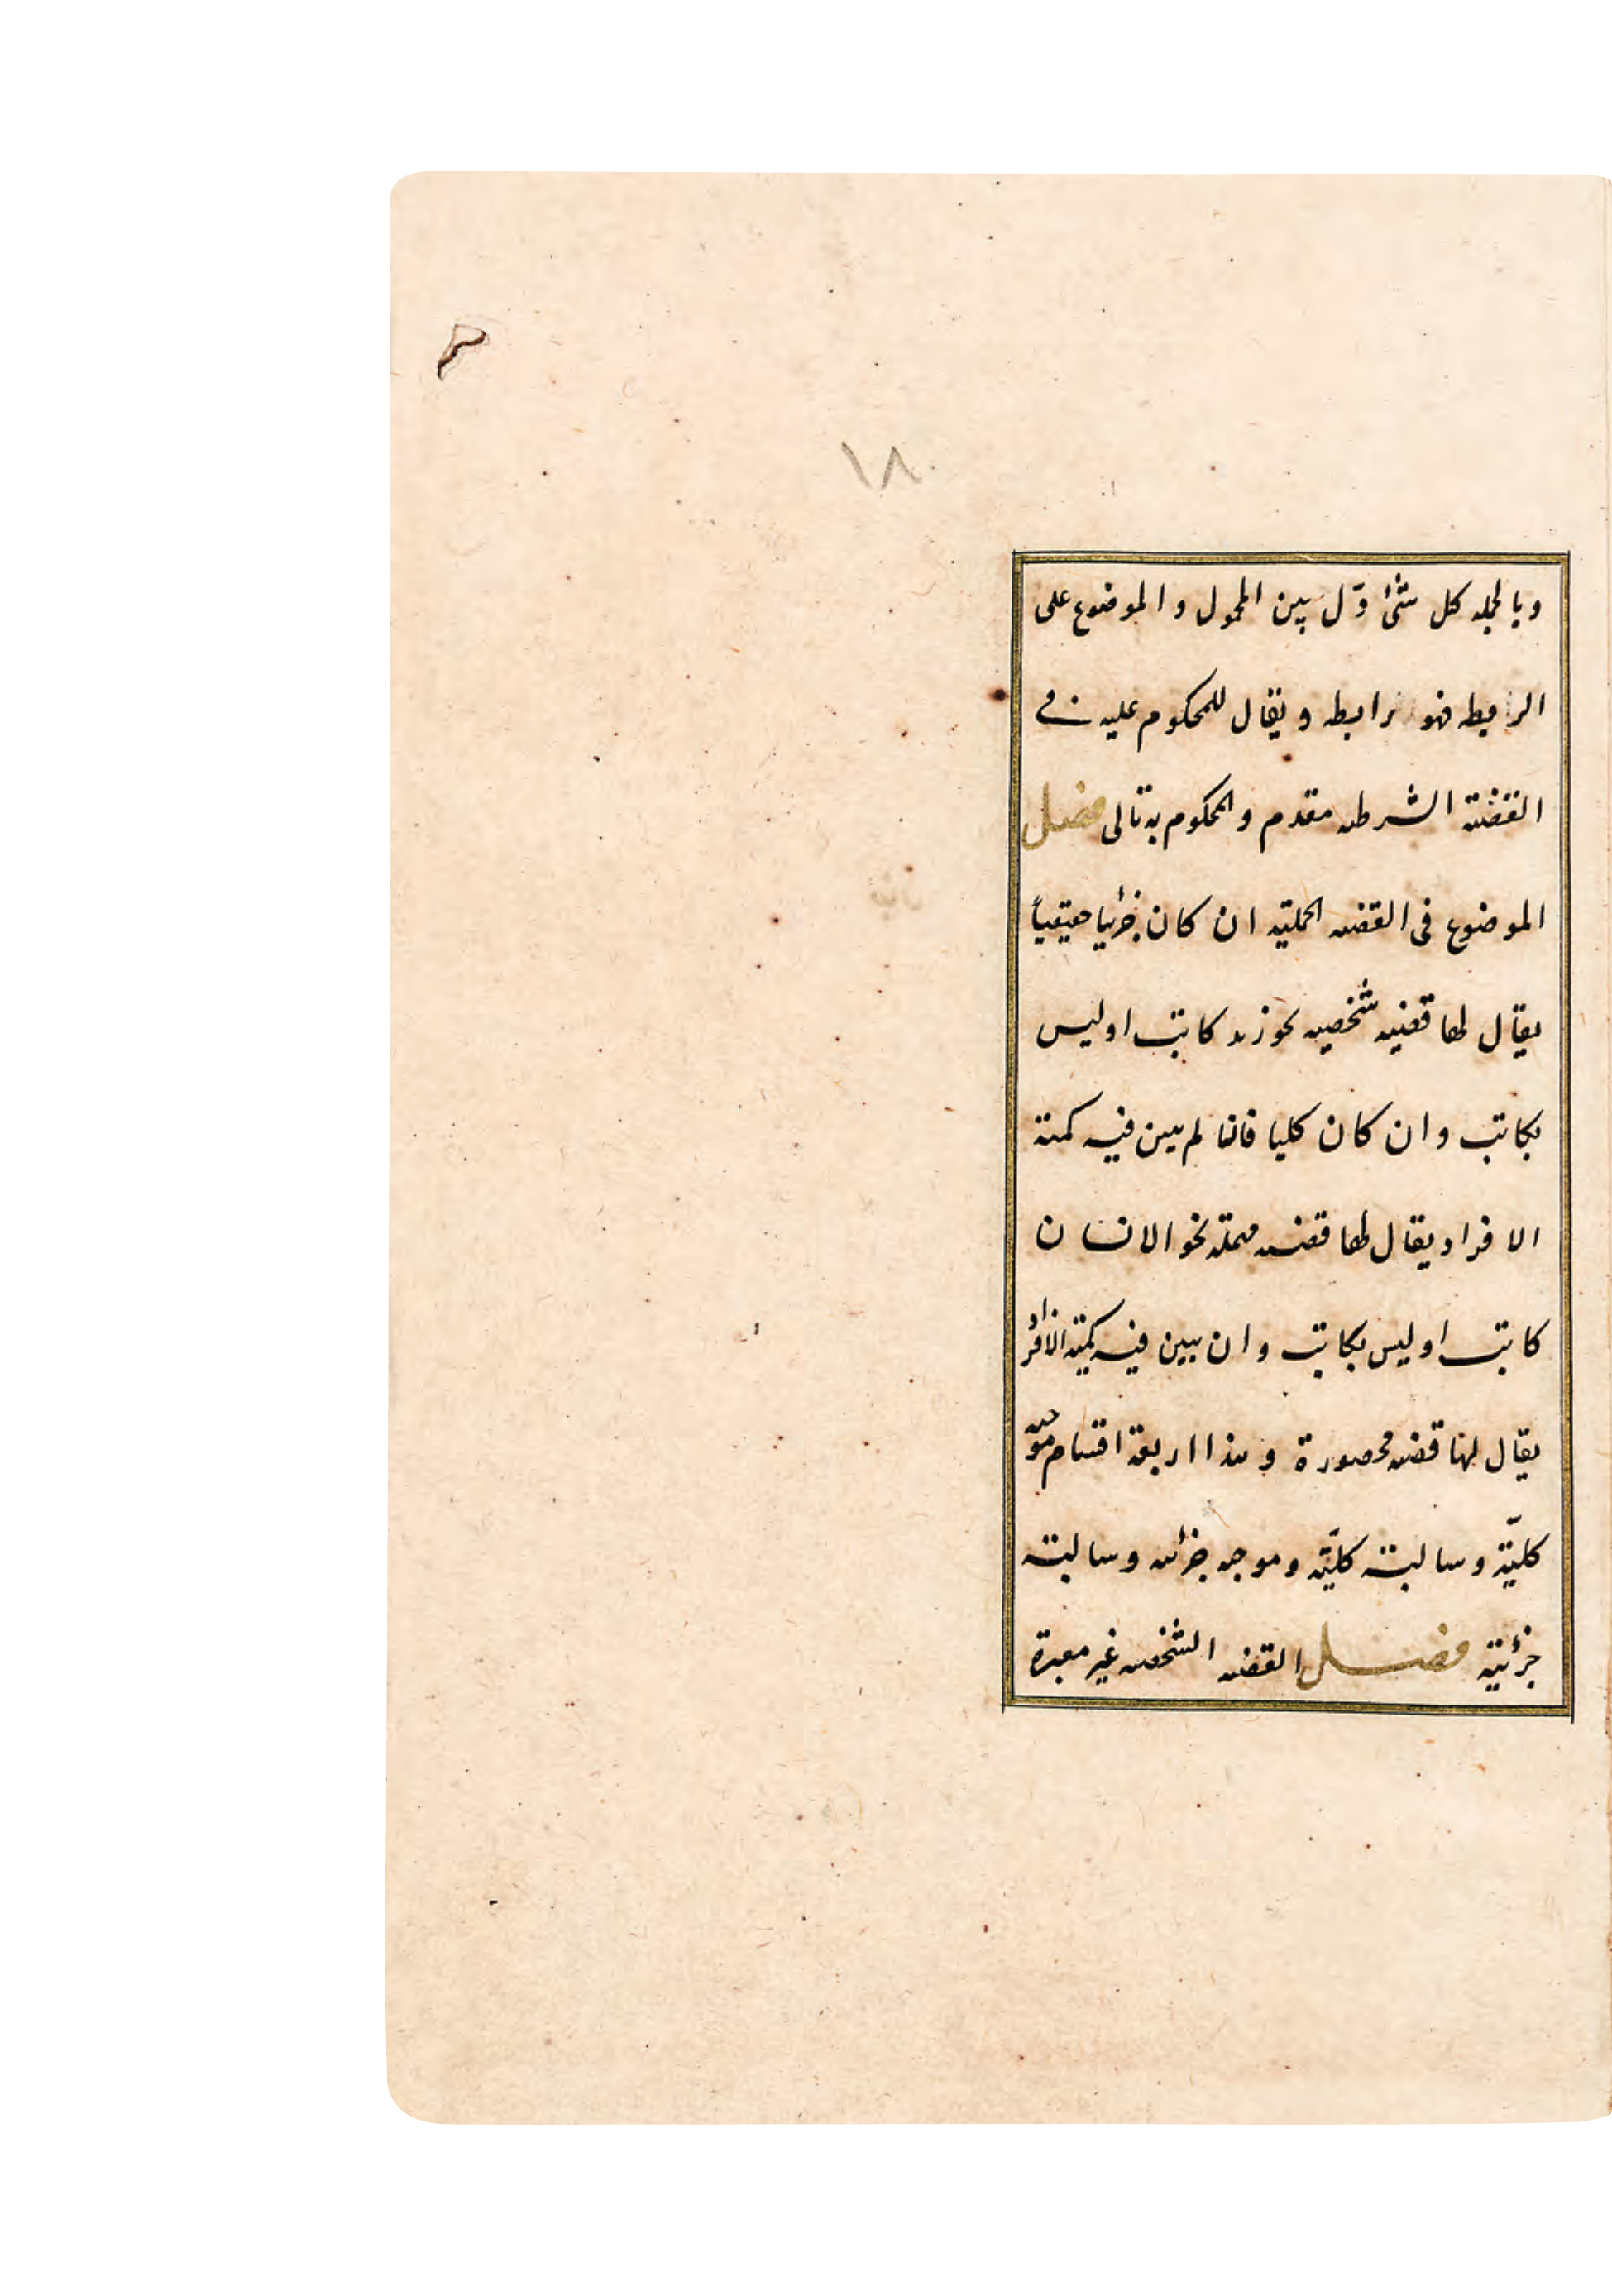 ١٨
وبالجمله كل شئ دّل بين المحمول و الموضوع على
الرابطه فهو رابطه و يقال للمحكوم عليه في
القضية الشرطيه مقدم و المحكوم به تالى فصل
الموضوع فى القضيه الحمليه ان كان جزئيا حقيقياً
يقال لها قضيه شخصيه نحو زيد كاتب او ليس
بكاتب و ان كان كليا فانما لم يبين فيه كمية
الافراد يقال لها قضيه مهمله نحو الانسان
كاتب او ليس بكاتب و ان يبين فيه كميه الافراد
يقال لها قضيه محصورة و هذا اربعة اقسام موجبه
كليّة و سالبة كليّه و موجبه جزئيه و سالبة
جزئية فصل القضيه الشخصيه غير معتبرة